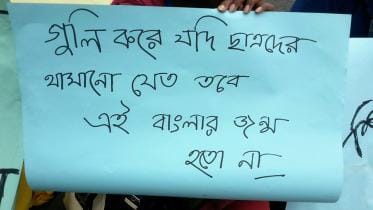 গুলি করে যদি ছাত্রদের
থামানো যেত তবে
এই বাংলার জন্ম
হতো না